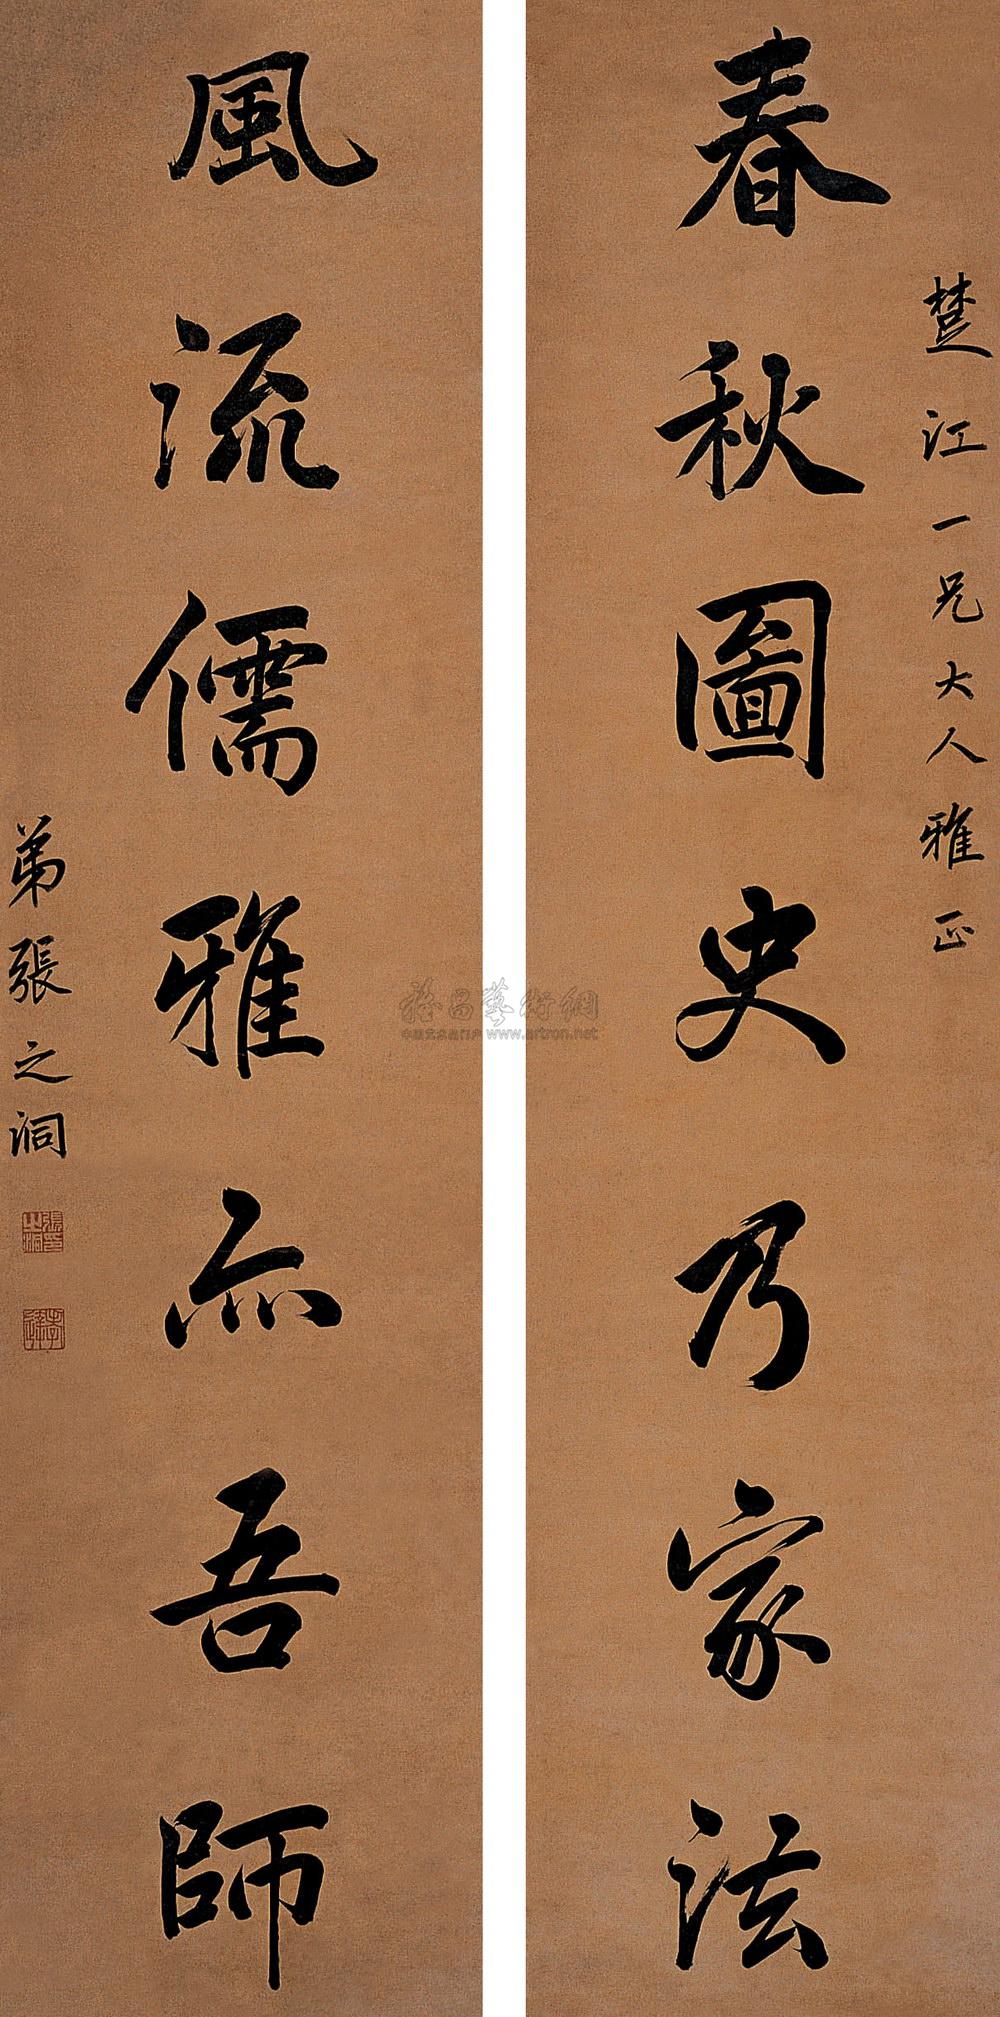 春秋圖史乃家法
楚江一兄大人雅正
風流儒雅亦吾師
弟張之洞
張之洞印
孝達
雅昌藝術網
中国艺术品门户 www.artron.net